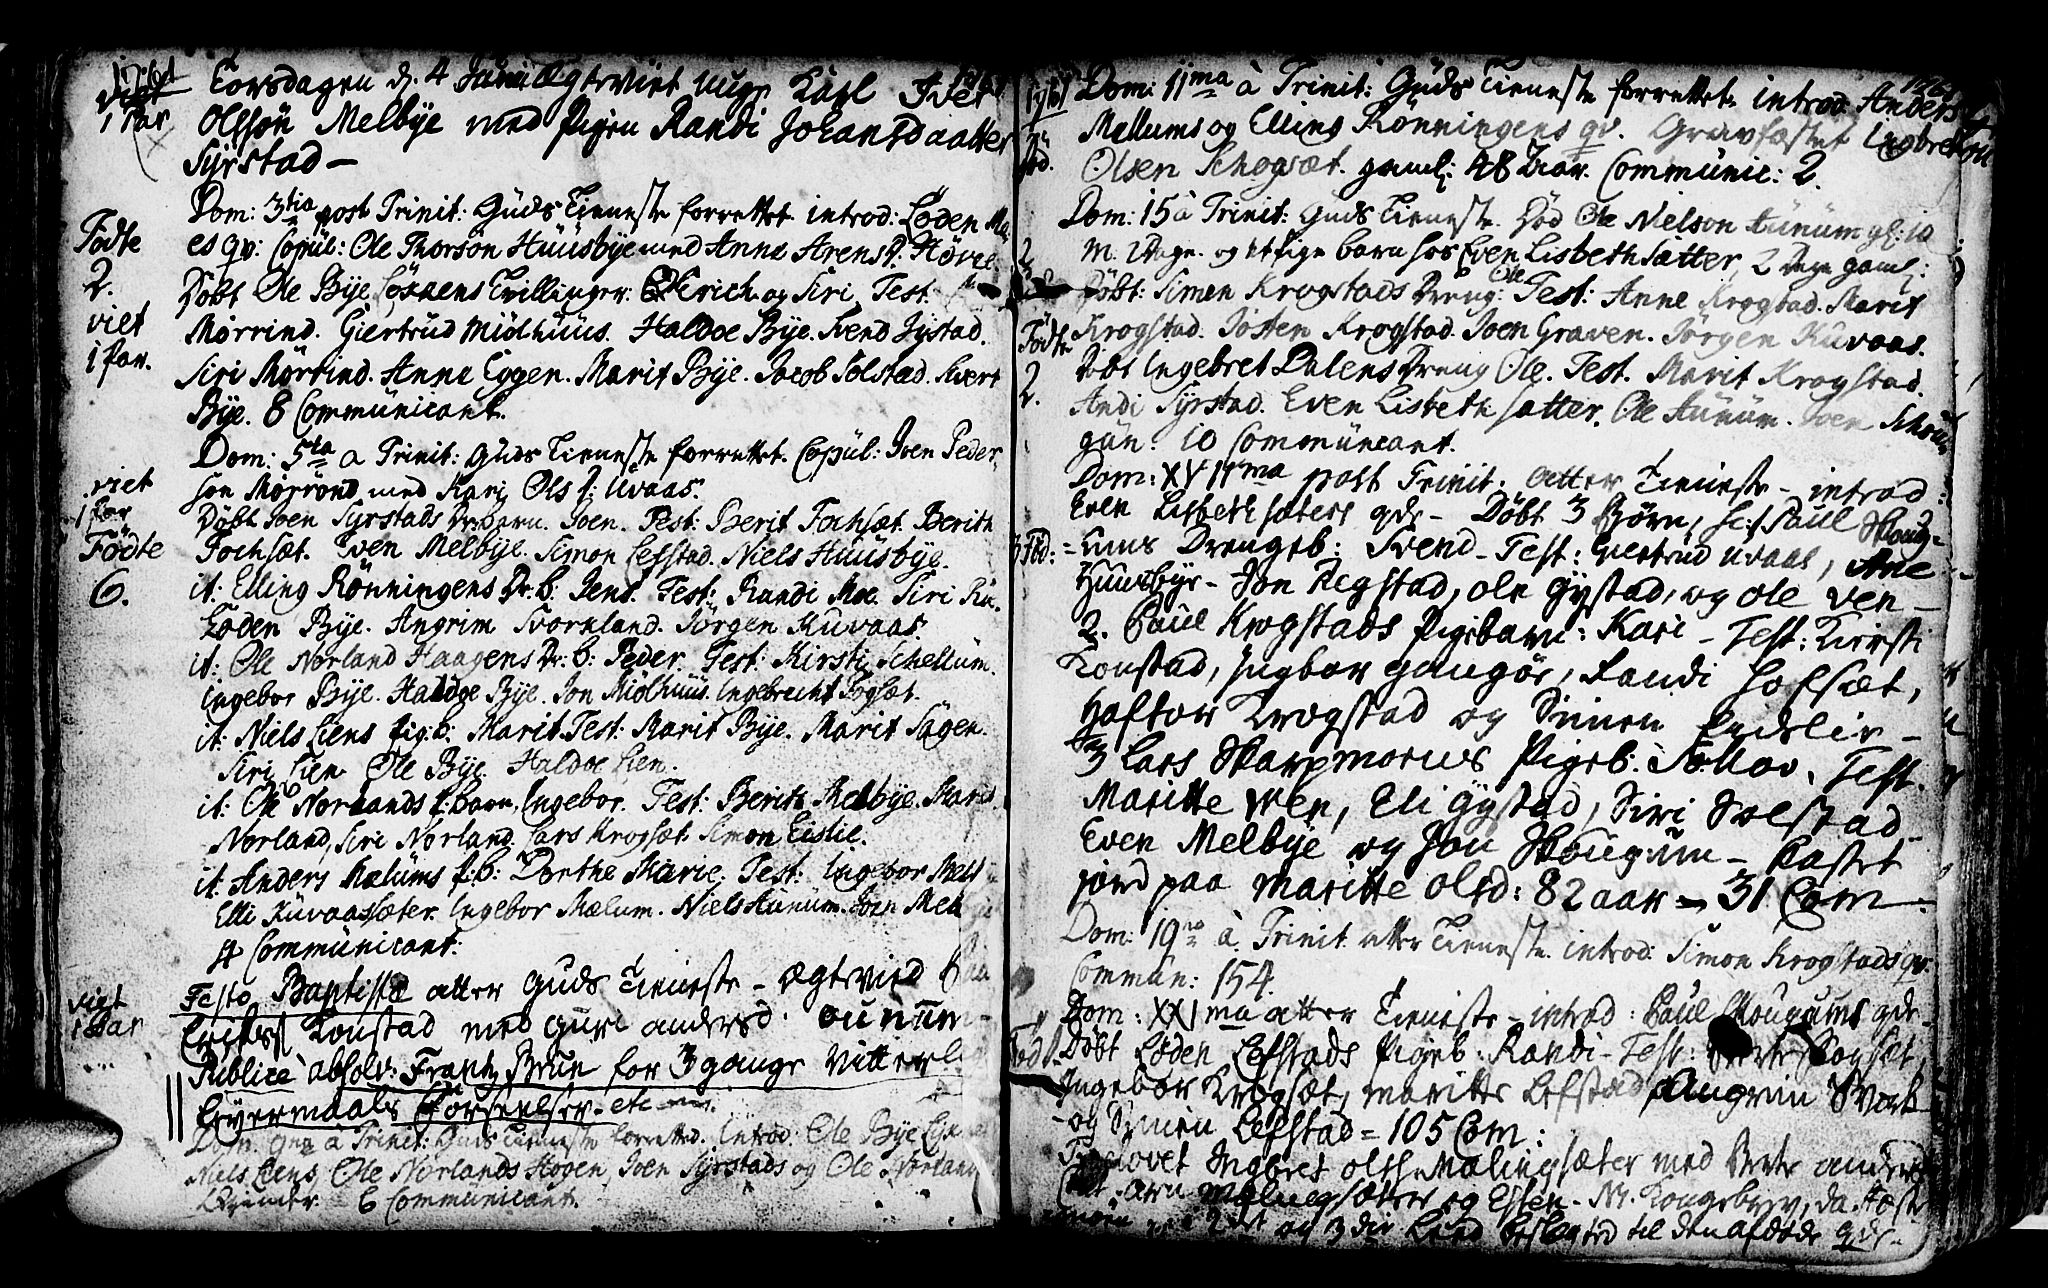 1761
viet
1 Par
Torsdagen d. 4 Junii Ægtviet unge Karl Iver
Olssøn Melbÿe med Pigen Randi Johansdaatter
Sÿrstad –
Dom: 3tia post Trinit: Guds Tieneste forrettet. introd: Loden
es qv: Copul: Ole Thorsøn Huusbÿe med Anne Arens D. Høvee
Døbt Ole Bÿe Tvillinger: Erich og Siri, Test:
Mørrind. Giertrud Miölhuus. Haldoe Bÿe. Svend Jÿstad.
Siri Mørrind. Anne Eggen. Marit Bÿe. Jacob Solstad. Sivert
Bÿe. 8 Communicant.
Fødte
2.
viet
1 Par.
Dom: 5ta a Trinit: Guds Tieneste forrettet. Copul: Joen Peder-
søn Mørrond med Kari Ols D: Uvaas.
viet
1 Par
Døbt Joen Sÿrstads Dr: barn. Joen. Test: Berit Fochsæt. Berith
Fochsæt. Iven Melbÿe. Simon Lefstad. Niels Huusbÿe.
Födte
6.
it: Elling Rønningens Dr: b. Jens. Test: Randi Moe. Siri
Loden Bÿe. Angrim Svorkland. Jørgen Kuvaas.
it: Ole Norland Haagens Dr: b: Peder. Test: Kirsti Schellum.
Ingebor Bÿe. Haldoe Bÿe. Jon Miölhuus. Ingebrecht Fogsæt.
it: Niels Liens Pig: b: Marit. Test: Marit Bÿe. Marit Sagen.
Siri Lien Ole Bÿe. Haldoe Lien.
it: Ole Norlands P: barn, Ingebor. Test: Berith Melbÿe. Marit
Norland, Siri Norland. Lars Krogsæt. Simon Eislie.
it: Anders Mælums P: b: Dorthe Marie. Test: Ingebor
Elli Kuvaassæter. Ingebor Mælum. Niels Hunum. Joen
4 Communicant:
viet
1 Par
Festo Baptistæ atter Guds Tieneste – Ægtvied
Konstad med Guri andersd. ounum –
Publice absolv: Frantz Brun for 3 gange
Leyermaals Forseelser – etc
Dom. 9na à Trinit: Guds Tieneste forrettet. Introd: Ole Bÿe
Niels Liens, Ole Norlands Hogen, Joen Sÿrstads og Ole Norland
Qvinder. 6 Communicant.
1761
Dom: 11ma à Trinit: Guds Tieneste forrettet. introd: Anders
Mællums og Elling Rønningens qv. Gravfæstet Ingebret
Olsen Schogsæt. gaml: 48 Aar. Communic: 2.
Dom: 15 à Trinit: Guds Tieneste. Død Ole Nielson Hunum gl: 10
M. Dage. og et Pige barn hos Even Lisbethsætter, 2 Dage gaml:
Døbt: Simen Krogstads Dreng: Ole Test: Anne Krogstad. Marit
Krogstad. Josten Krogstad. Joen Graven. Jørgen Kuvaas.
Fødte
2.
Døbt Ingebret Dalens Dreng Ole. Test. Marit Krogstad.
Andi Sÿrstad. Even Lisbethsætter. Ole Hunum. Joen Schou
gun. 10 Communicant.
Dom: XVIIma post Trinit: atter Tieneste – introd:
Even Lisbethsæters qde – Døbt 3 Børn, sc: 1 Paul Skoug-
3 Fød:
ums Drengeb: Svend – Test: Giertrud Uvaas, Ane
Huusbye – Jon Regstad, Ole Gÿstad, og Ole Ven –
2. Paul Krogstads Pigebarn: Kari – Test: Kirsti
Konstad, Ingbor Gangør, Randi Hofsæt,
Haftor Krogstad og Simen Endslir –
3 Lars Skarpmoens Pigeb: Sollov, Test.
Maritte Wen, Eli Gÿstad, Siri Solstad
Even Melbÿe og Jon Skougum – kastet
jord paa Maritte Olsd: 82 aar – 31 Com –
Dom: 19na à Trinit. atter Tieneste. introd: Simon Krogstads qv.
Commun: 154.
Dom: XXIma atter Tieneste – introd: Paul Skougums qde
Fød 1.
Døbt Loden Lefstads Pigeb: Randi – Test: Fogsæt,
Ingebor Krogsæt, Maritte Lefstad, Angrim
og Simen Lefstad = 105 Com:
Trolovet Ingbret Olss. Mælingsæter med Berte
Mælingsætter og Esten – Kongsberg, da
2det og 3die Leed beslægted til den afdøde qde –